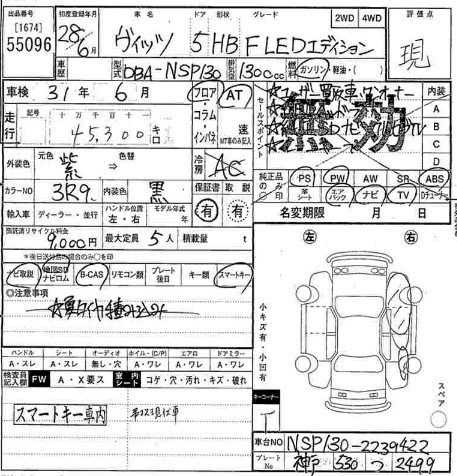 出品番号 初度登録年月 車名 ドア 形状 グレード 2WD 4WD 評価点
[1674]
55096 28年6月 ヴィッツ 5 HB F LEDエディション 現
車歴 型式 DBA-NSP130 排気量 1300cc 燃料 ガソリン・軽油・( )
車検 31年 6月 フロア・コラム・インパネ AT 速 MT車のみ記入
走行 記号 十万千百十一
45,300キロ
セールスポイント 無効 内装 A B C D
外装色 元色 紫 色替 冷房 AC
カラーNO 3R9 内装色 黒 保証書 取説
純正品のみ○印 PS PW AW SR ABS
革シート エアバック ナビ TV Dチューナー
輸入車 ディーラー・並行 ハンドル位置 左・右 モデル年式 年 有 有
名変期限 月 日
預託済リサイクル料金 9,000円 最大定員 5人 積載量 t
※後日送付分のみ○を印
ナビ取説 B-CAS リモコン類 プレート後日 キー類 スマートキー
◎注意事項
左 右
小キズ有・小凹有
ハンドル シート オーディオ ホイル・(C/P) エアロ ドアミラー
A・スレ A・スレ 無し・穴 A・ワレ A・ワレ A・ワレ
検査員記入欄 FW A・X要ス 室内シート コゲ・穴・汚れ・キズ・破れ
キーコーナー
スペア
スマートキー車内
車台No NSP130-2239422
プレートNo 神戸 530 つ 2499